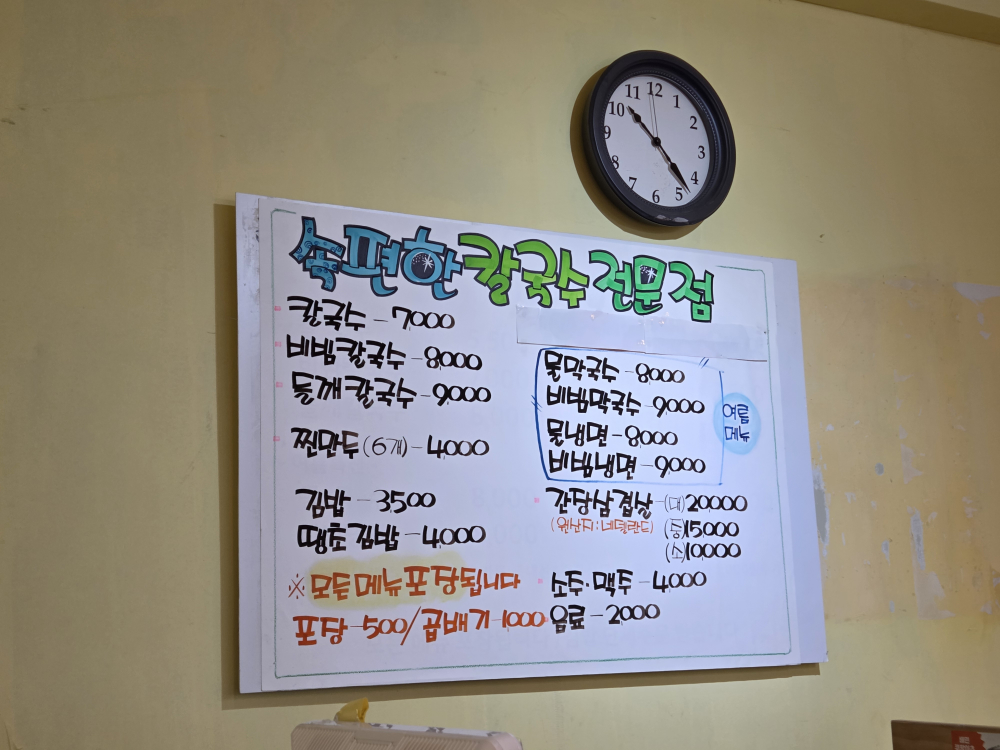 11 12 1
10 2
9 3
8 4
7 6 5
속편한 칼국수 전문점
칼국수 - 7000
비빔칼국수 - 8000
들깨칼국수 - 9000
찐만두 (6개) - 4000
김밥 - 3500
땡초김밥 - 4000
※ 모든메뉴포당됩니다
포당 - 500/곱배기 - 1000
물막국수 - 8000
비빔막국수 - 9000
물냉면 - 8000
비빔냉면 - 9000
여름
메뉴
간당삼겹살 - (대) 20000
(원산지:네덜란드) (중) 15,000
(소) 10000
소주·맥주 - 4000
음료 - 2000